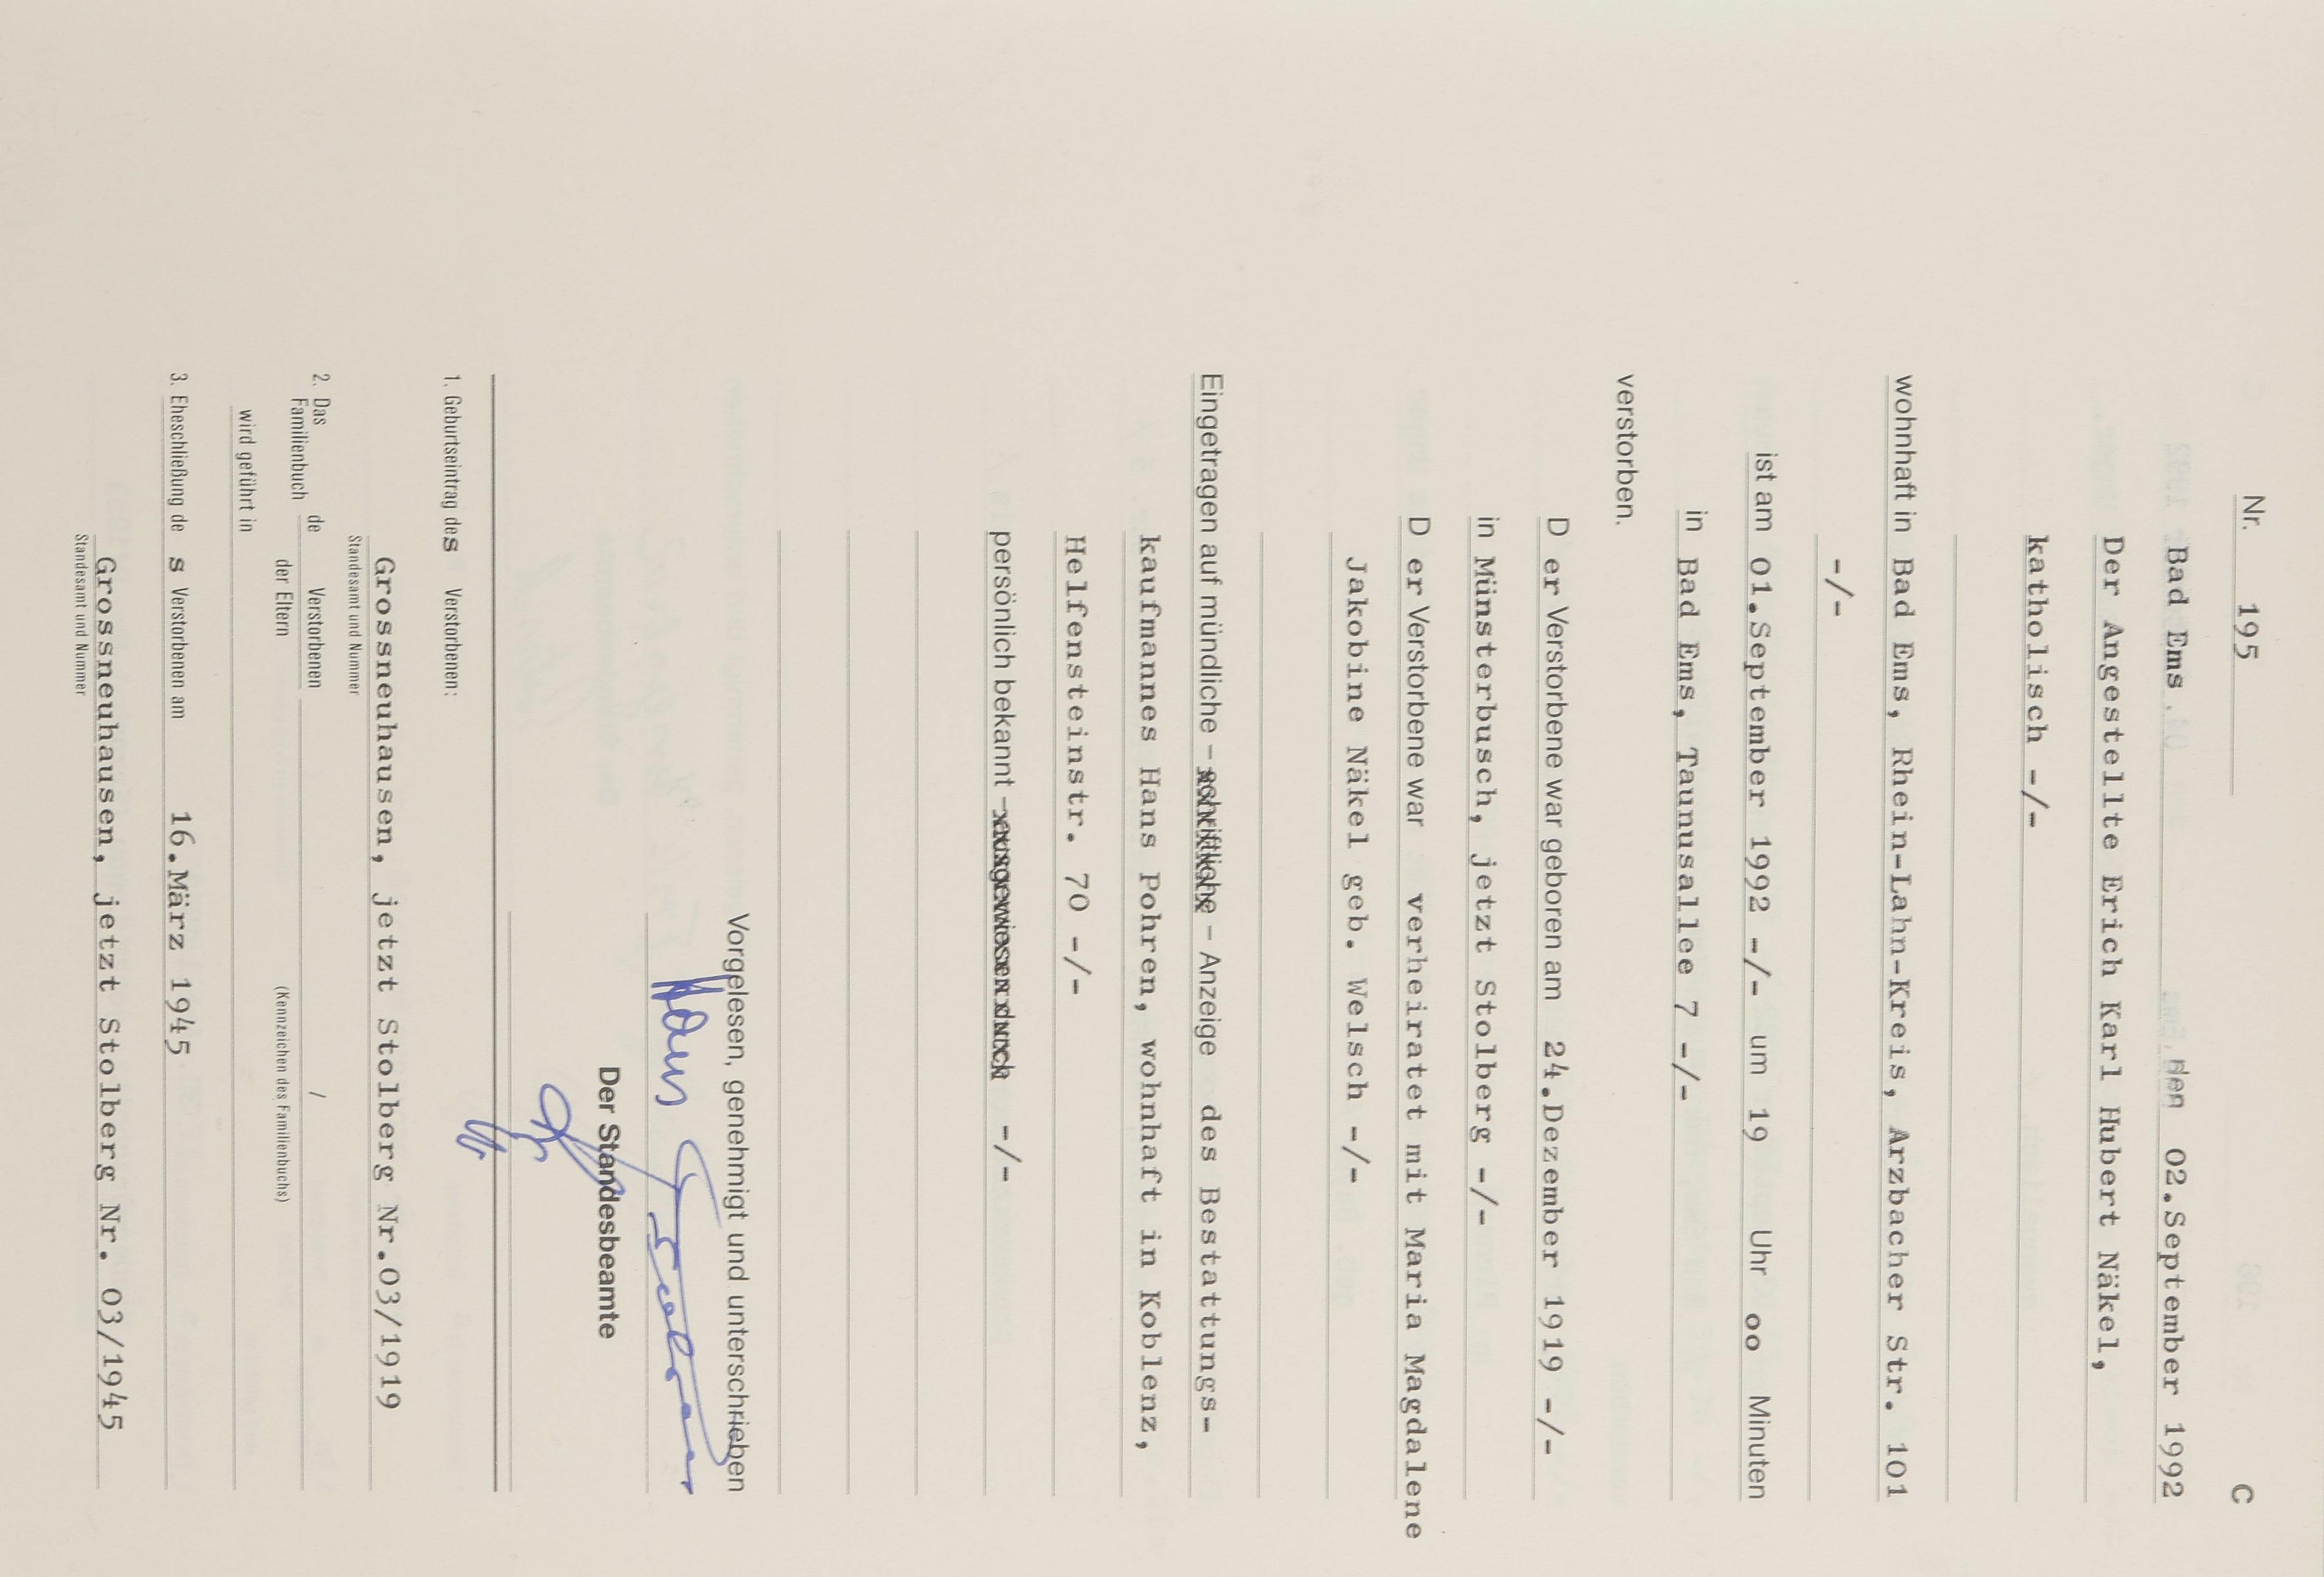 Nr. 195 C
Bad Ems den 02.September 1992
Der Angestellte Erich Karl Hubert Näkel,
katholisch -/-
wohnhaft in Bad Ems, Rhein-Lahn-Kreis, Arzbacher Str. 101
-/-
ist am 01.September 1992 -/- um 19 Uhr oo Minuten
in Bad Ems, Taunusallee 7 -/-
verstorben.
D er Verstorbene war geboren am 24.Dezember 1919 -/-
in Münsterbusch, jetzt Stolberg -/-
D er Verstorbene war verheiratet mit Maria Magdalene
Jakobine Näkel geb. Welsch -/-
Eingetragen auf mündliche – schriftliche – Anzeige des Bestattungs-
kaufmannes Hans Pohren, wohnhaft in Koblenz,
Helfensteinstr. 70 -/-
persönlich bekannt – ausgewiesen durch -/-
Vorgelesen, genehmigt und unterschrieben
Hans
Der Standesbeamte
1. Geburtseintrag des Verstorbenen:
Grossneuhausen, jetzt Stolberg Nr.03/1919
Standesamt und Nummer
2. Das Familienbuch de Verstorbenen /
der Eltern (Kennzeichen des Familienbuchs)
wird geführt in
3. Eheschließung de s Verstorbenen am 16.März 1945
Grossneuhausen, jetzt Stolberg Nr. 03/1945
Standesamt und Nummer